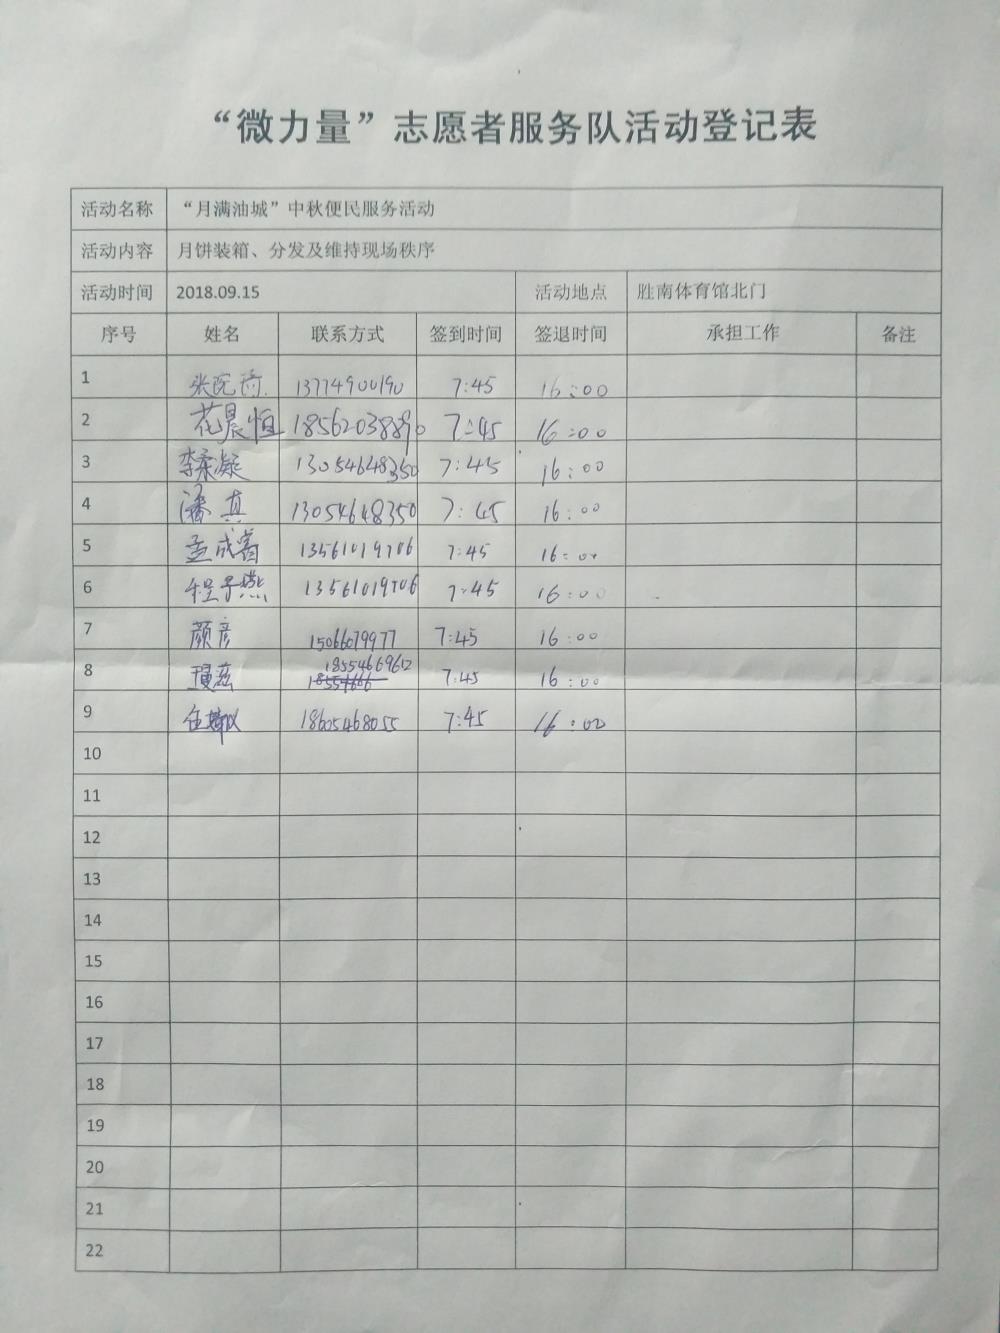 “微力量”志愿者服务队活动登记表
活动名称 “月满油城”中秋便民服务活动
活动内容 月饼装箱、分发及维持现场秩序
活动时间 2018.09.15 活动地点 胜南体育馆北门
序号 姓名 联系方式 签到时间 签退时间 承担工作 备注
1 13774900190 7:45 16:00
2 花晨恒 18562038890 7:45 16:00
3 李柔凝 13054648350 7:45 16:00
4 潘真 13054648350 7:45 16:00
5 13561019706 7:45 16:00
6 程子燕 13561019706 7:45 16:00
7 颜彦 15066079977 7:45 16:00
8 18554669612 7:45 16:00
9 18605468055 7:45 16:00
10
11
12
13
14
15
16
17
18
19
20
21
22